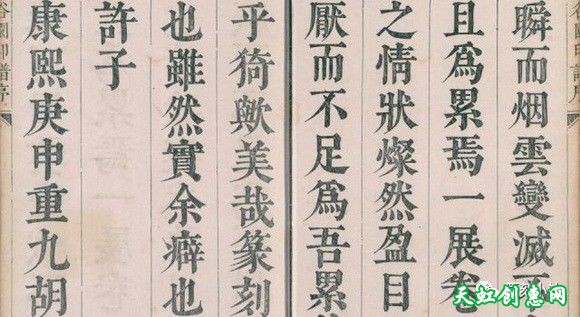 瞬而烟雲變滅
且爲累焉一展卷
之情狀燦然盈目
厭而不足爲吾累
乎猗歟美哉篆刻
也雖然實余癖也
許子
康熙庚申重九胡
谷園印譜序
天虹创意网